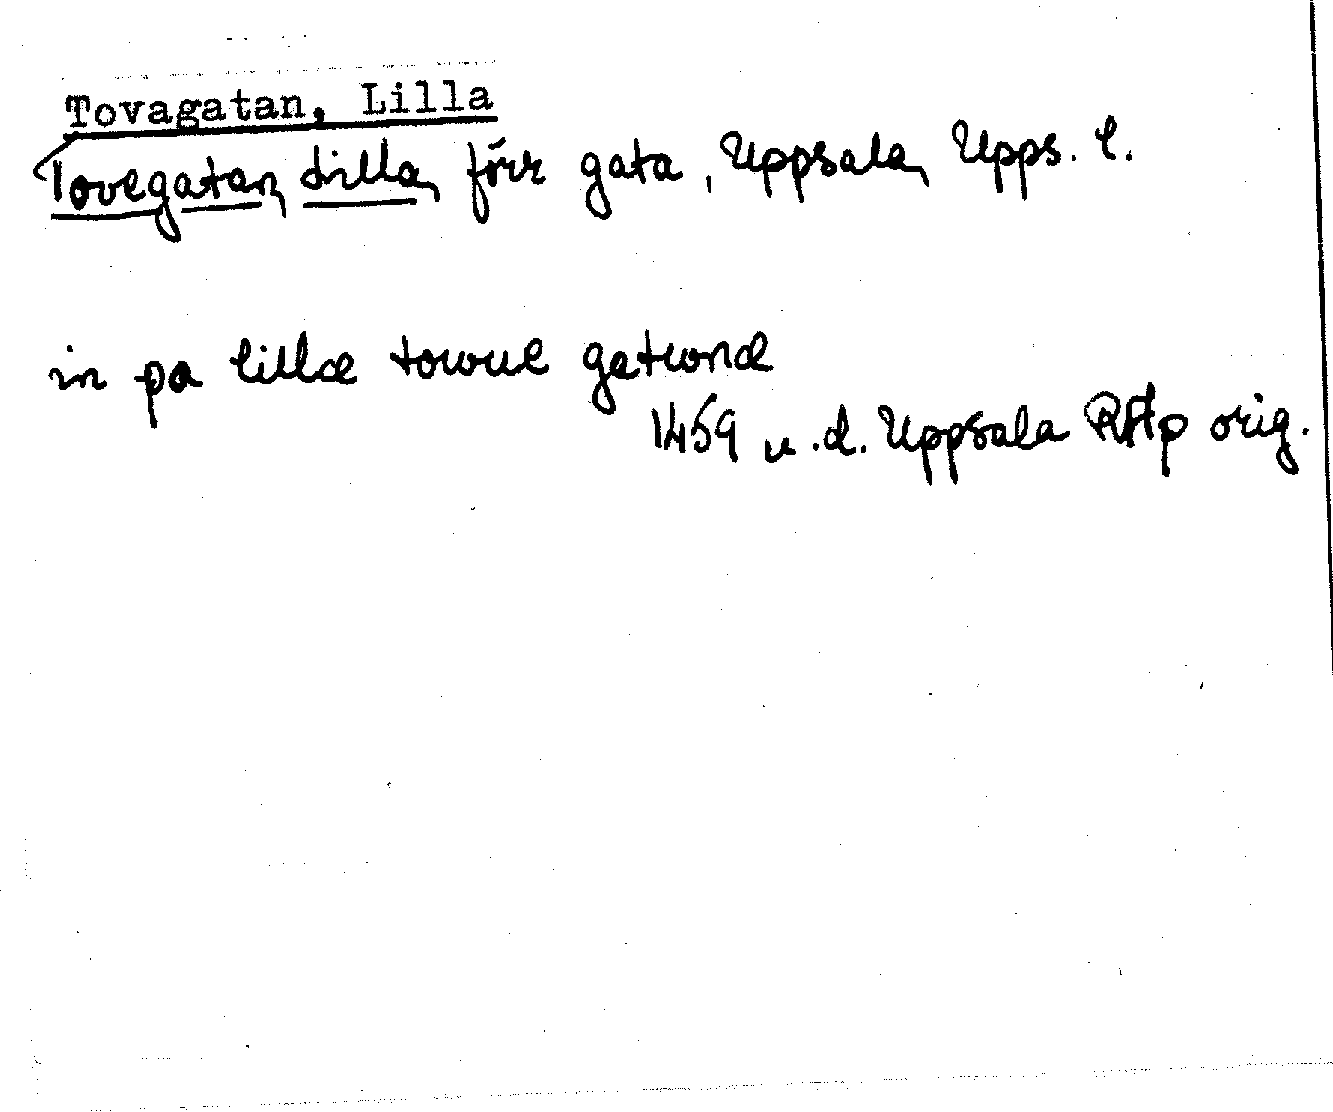 Tovagatan, Lilla
Tovegatan, Lilla, förr gata, Uppsala, Upps. l.
in pa lillæ towæ gatwnæ
1459 u.d. Uppsala RAp orig.